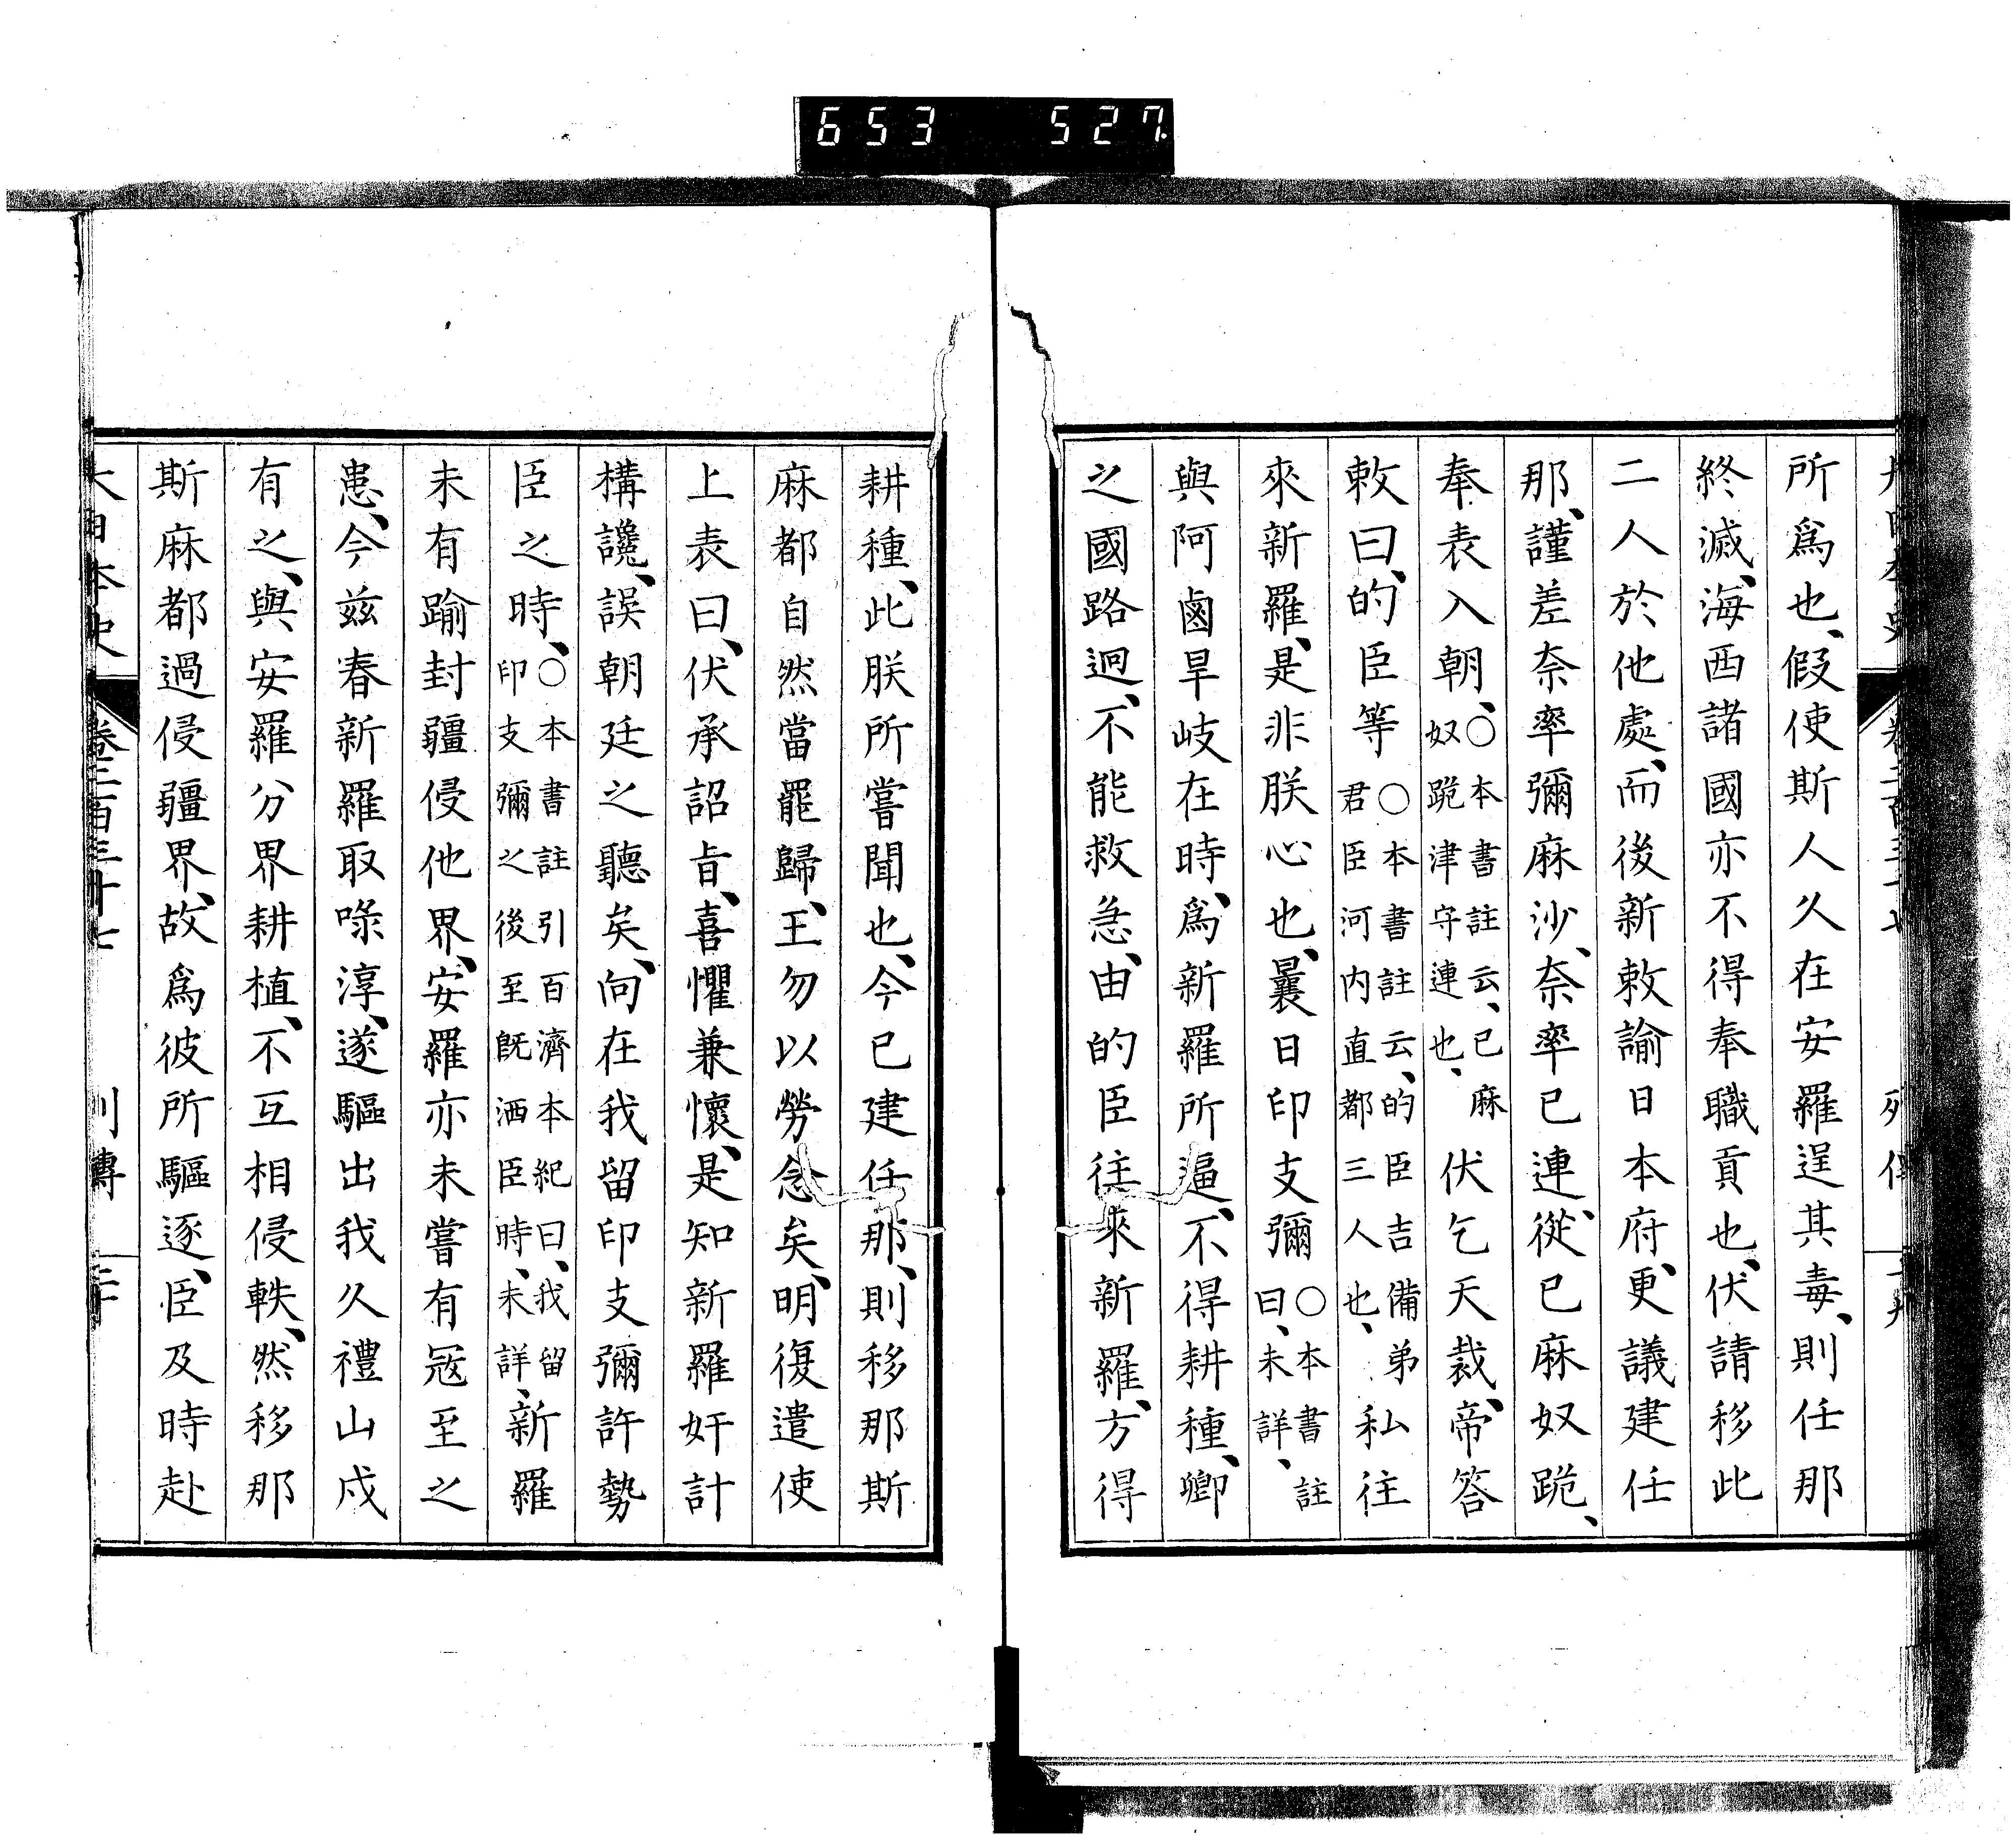 653 527
所爲也、假使斯人久在安羅逞其毒、則任那
終滅、海西諸國亦不得奉職貢也、伏請移此
二人於他處、而後新敕諭日本府、更議建任
那、謹差奈率彌麻沙、奈率已連、從已麻奴跪、
奉表入朝、○本書註云、已麻奴跪津守連也、伏乞天裁、帝答
敕曰、的臣等○本書註云、的臣吉備弟君臣河内直都三人也、私往
來新羅、是非朕心也、曩日印支彌○本書註曰、未詳、
與阿鹵旱岐在時、爲新羅所逼、不得耕種、卿
之國路迥、不能救急、由的臣往來新羅、方得
耕種、此朕所嘗聞也、今已建任那、則移那斯
麻都自然當罷歸、王勿以勞念矣、明復遣使
上表曰、伏承詔旨、喜懼兼懷、是知新羅奸計
構讒、誤朝廷之聽矣、向在我留印支彌許勢
臣之時、○本書註引百濟本紀曰、我留印支彌之後至既洒臣時、未詳、新羅
未有踰封疆侵他界、安羅亦未嘗有寇至之
患、今兹春新羅取㖨淳、遂驅出我久禮山戍
有之、與安羅分界耕植、不互相侵軼、然移那
斯麻都過侵疆界、故爲彼所驅逐、臣及時赴
大日本史 卷二百三十七 列傳 二十